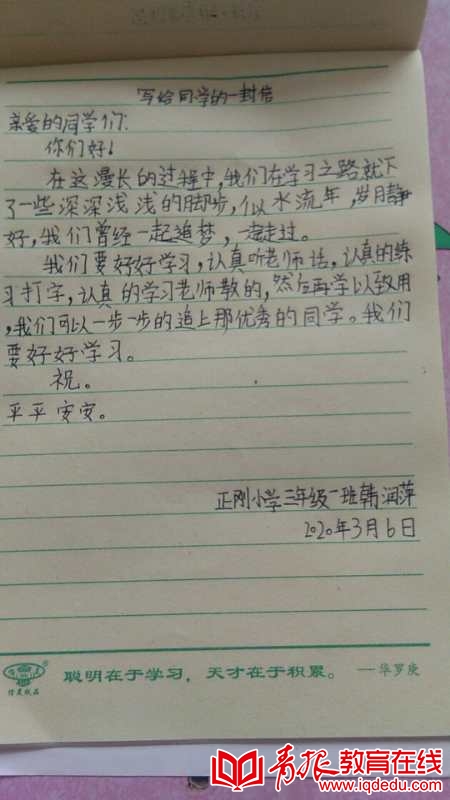 写给同学的一封信
亲爱的同学们:
你们好!
在这漫长的过程中,我们在学习之路就下
了一些深深浅浅的脚步,似水流年,岁月静
好,我们曾经一起追梦,一起走过。
我们要好好学习,认真听老师话,认真的练
习打字,认真的学习老师教的,然后再学以致用
,我们可以一步一步的追上那优秀的同学。我们
要好好学习。
祝。
平平安安。
正刚小学三年级一班韩润萍
2020年3月6日
聪明在于学习,天才在于积累。 —华罗庚
信发纸品
青报教育在线
www.iqdedu.com